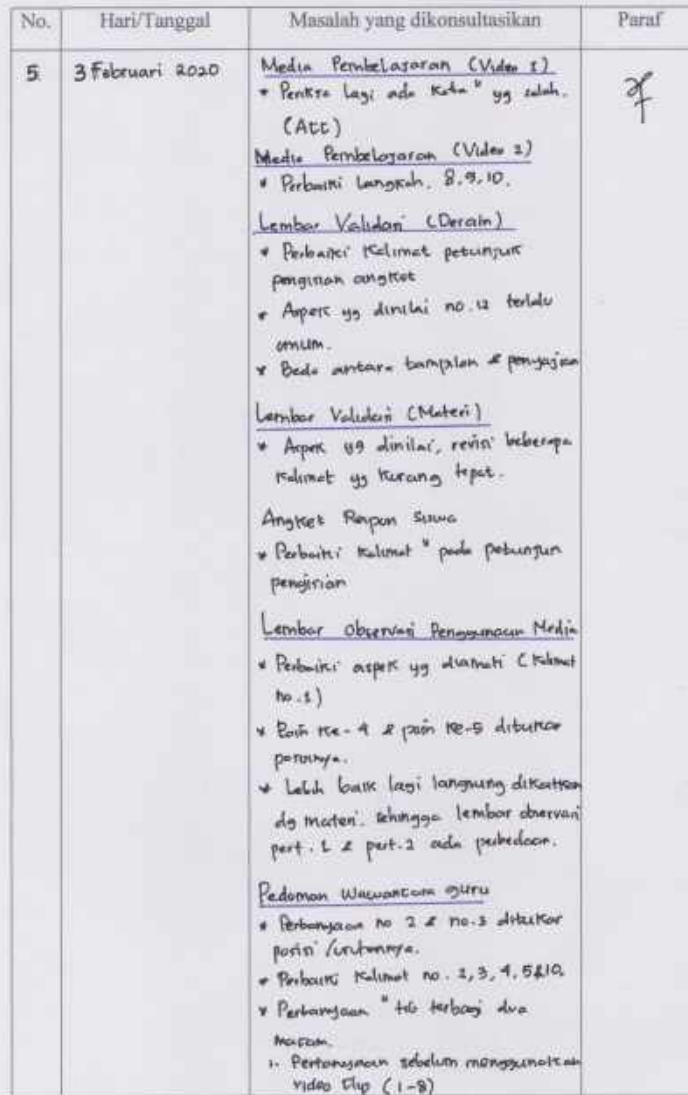 No. Hari/Tanggal Masalah yang dikonsultasikan Paraf
5. 3 Februari 2020 Media Pembelajaran (Video 1)
* Periksa lagi ada kata " yg salah.
(Acc)
Media Pembelajaran (Video 2)
* Perbaiki langkah. 8, 9, 10.
Lembar Validasi (Desain)
* Perbaiki kalimat petunjuk
pengisian angket
* Aspek yg dinilai no. 12 terlalu
umum.
* Beda antara tampilan & penyajian
Lembar Validasi (Materi)
* Aspek yg dinilai, revisi beberapa
kalimat yg kurang tepat.
Angket Respon Siswa
* Perbaiki kalimat " pada petunjuk
pengisian
Lembar Observasi Penggunaan Media
* Perbaiki aspek yg diamati (kalimat
no. 1)
* Poin ke-4 & poin ke-5 ditukar
posisinya.
* Lebih baik lagi langsung dikaitkan
dg materi. sehingga lembar observasi
pert. 1 & pert. 2 ada perbedaan.
Pedoman Wawancara guru
* Pertanyaan no 2 & no. 3 ditukar
posisi / urutannya.
* Perbaiki kalimat no. 2, 3, 4, 5 & 10.
* Pertanyaan " terbagi dua
macam.
1. Pertanyaan sebelum menggunakan
video Flip (1-8)